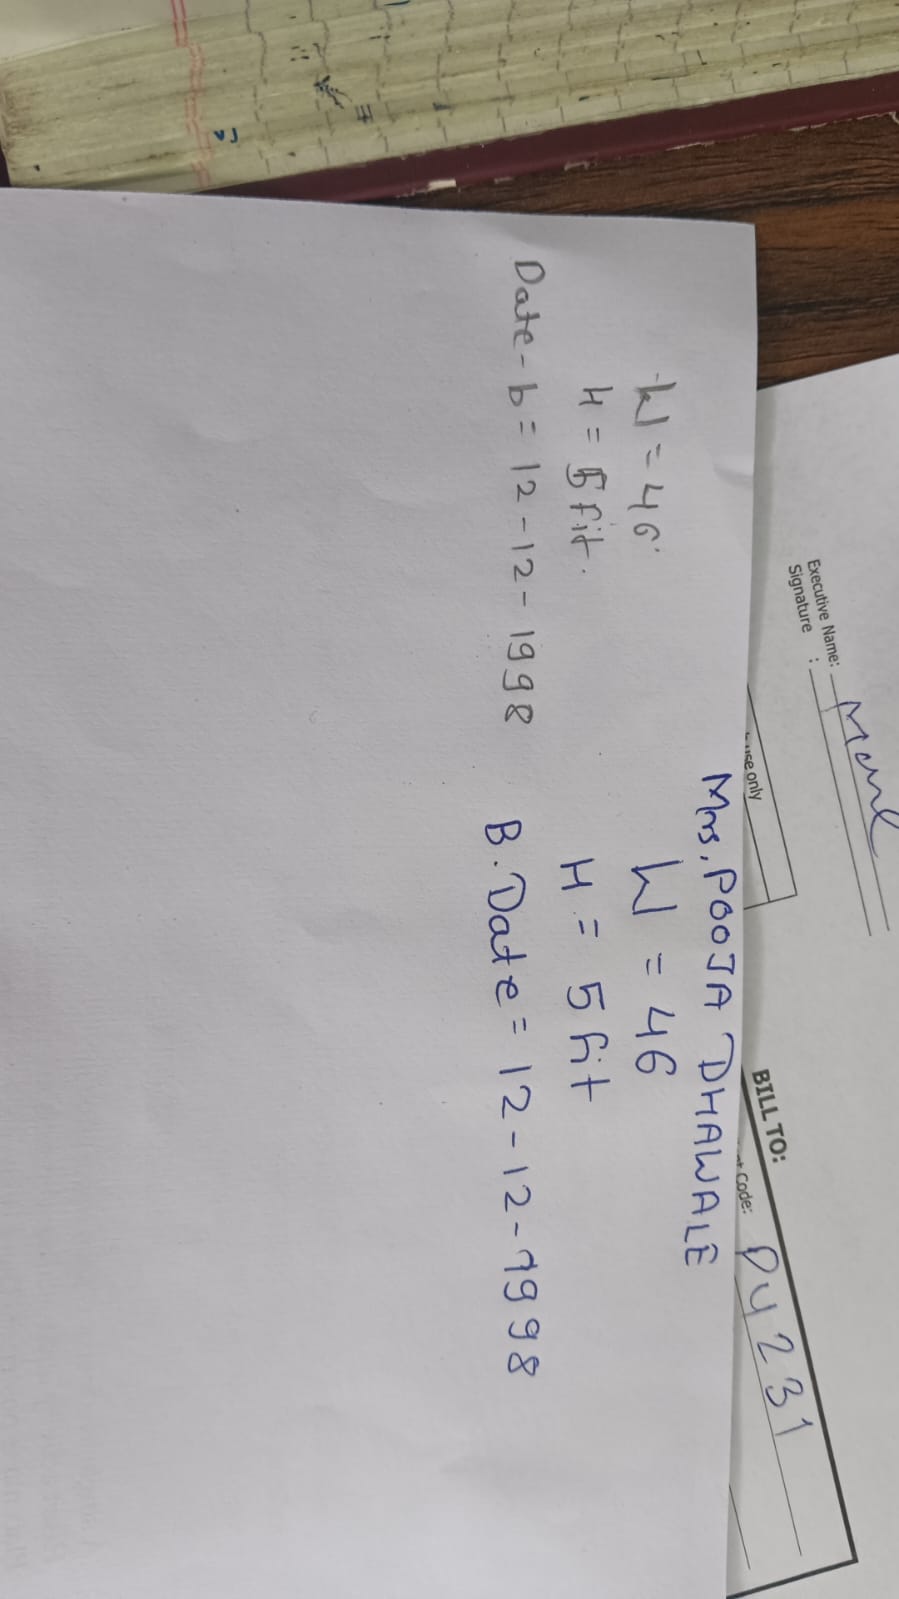 Executive Name:
Signature :
use only
BILL TO:
Code: DY231
Mrs. POOJA DHAWALE
W = 46
H = 5 fit.
Date-b = 12-12-1998
W = 46
H = 5 fit
B. Date = 12-12-1998